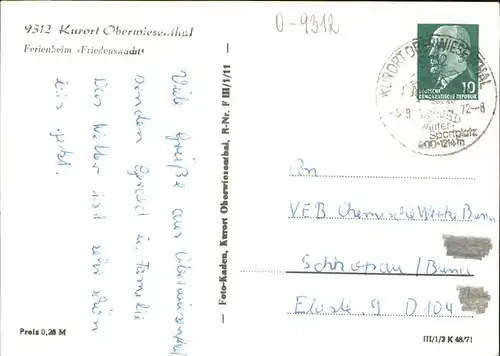 9312 Kurort Oberwiesenthal
Ferienheim »Friedenswacht«
0-9312
Viele Grüße aus Oberwiesenthal
senden
in Familie
Das Wetter ist sehr schön
bis jetzt.
— Foto-Kaden, Kurort Oberwiesenthal, R-Nr. F III/1/11 —
KURORT OBERWIESENTHAL
9312
72-8
Winter-
Sportplatz
900-1214m
DEUTSCHE
DEMOKRATISCHE REPUBLIK
10
An
VEB Chemische Werke Buna
Schkopau/Buna
D 104
Preis 0,25 M
III/1/2 K 48/71